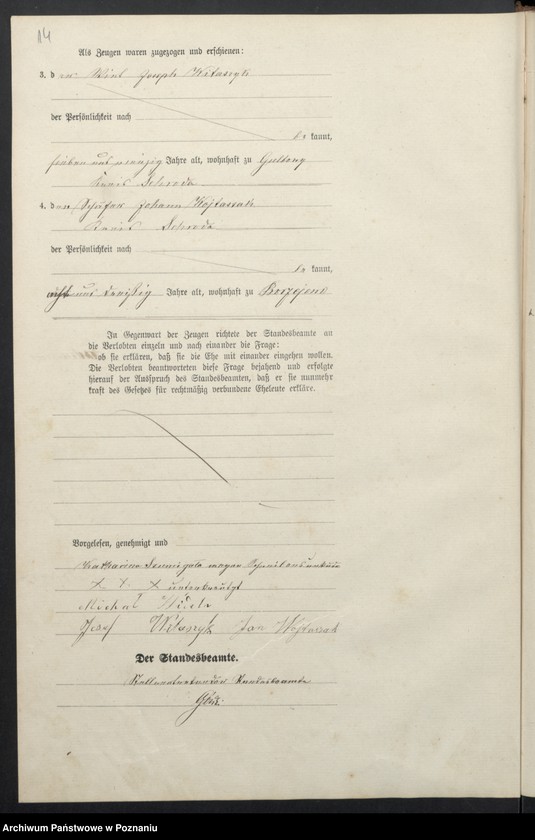 14
Als Zeugen waren zugezogen und erschienen:
3. der Wirt Joseph Witaszyk
der Persönlichkeit nach
be kannt,
sieben und vierzig Jahre alt, wohnhaft zu Gultowy
Kreis Schroda
4. der Schäfer Johann Wojtaszak
Kreis Schroda
der Persönlichkeit nach
be kannt,
acht und dreißig Jahre alt, wohnhaft zu
In Gegenwart der Zeugen richtete der Standesbeamte an
die Verlobten einzeln und nach einander die Frage:
ob sie erklären, daß sie die Ehe mit einander eingehen wollen.
Die Verlobten beantworteten diese Frage bejahend und erfolgte
hierauf der Ausspruch des Standesbeamten, daß er sie nunmehr
kraft des Gesetzes für rechtmäßig verbundene Eheleute erkläre.
Vorgelesen, genehmigt und
Katharina wegen Schreibensunkunde
+ + + unterkreuzt
Michał
Józef Witaszyk Jan Wojtaszak
Der Standesbeamte.
Stellvertretender Standesbeamte
Archiwum Państwowe w Poznaniu